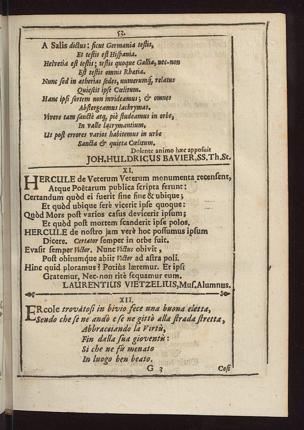 52.
A Salis dictus: sicut Germania testis,
Et testis est Hispania.
Helvetia est testis; testis quoque Gallia, nec-non
Est testis omnis Rhætia.
Nunc sed in ætherias ædes, numerumq; relatus
Quiescit ipse Cælitum.
Hanc ipsi sortem non invideamus; & omnes
Abstergeamus lachrymas.
Vivere tam sanctè atq; piè studeamus in orbe,
In valle lacrymantium,
Ut post errores varios habitemus in urbe
Sancta & quieta Cælitum.
Dolente animo hæc apposuit
JOH. HULDRICUS BAVIER, SS. Th. St.
XI.
HERCULE de Veterum Veterum monumenta recensent,
Atque Poëtarum publica scripta ferunt:
Certandum quòd ei fuerit sine fine & ubique;
Et quòd ubique ferè vicerit ipse quoque:
Quòd Mors post varios casus devicerit ipsum;
Et quòd post mortem scanderit ipse polos.
HERCULE de nostro jam verè hoc possumus ipsum
Dicere. Certator semper in orbe fuit.
Evasit semper Victor. Nunc Victus obivit;
Post obitumque abiit Victor ad astra poli.
Hinc quid ploramus? Potiùs lætemur. Et ipsi
Gratemur, Nec-non ritè sequamur eum.
LAURENTIUS VIETZELIUS, Mus. Alumnus.
XII.
ERcole trovatosi in bivio fece una buona eletta,
Sendo che se ne andò e se ne gittò alla strada stretta,
Abbracciando la Virtù,
Fin dalla sua gioventù:
Sì che ne fù menato
In luogo ben beato.
G 3
Così